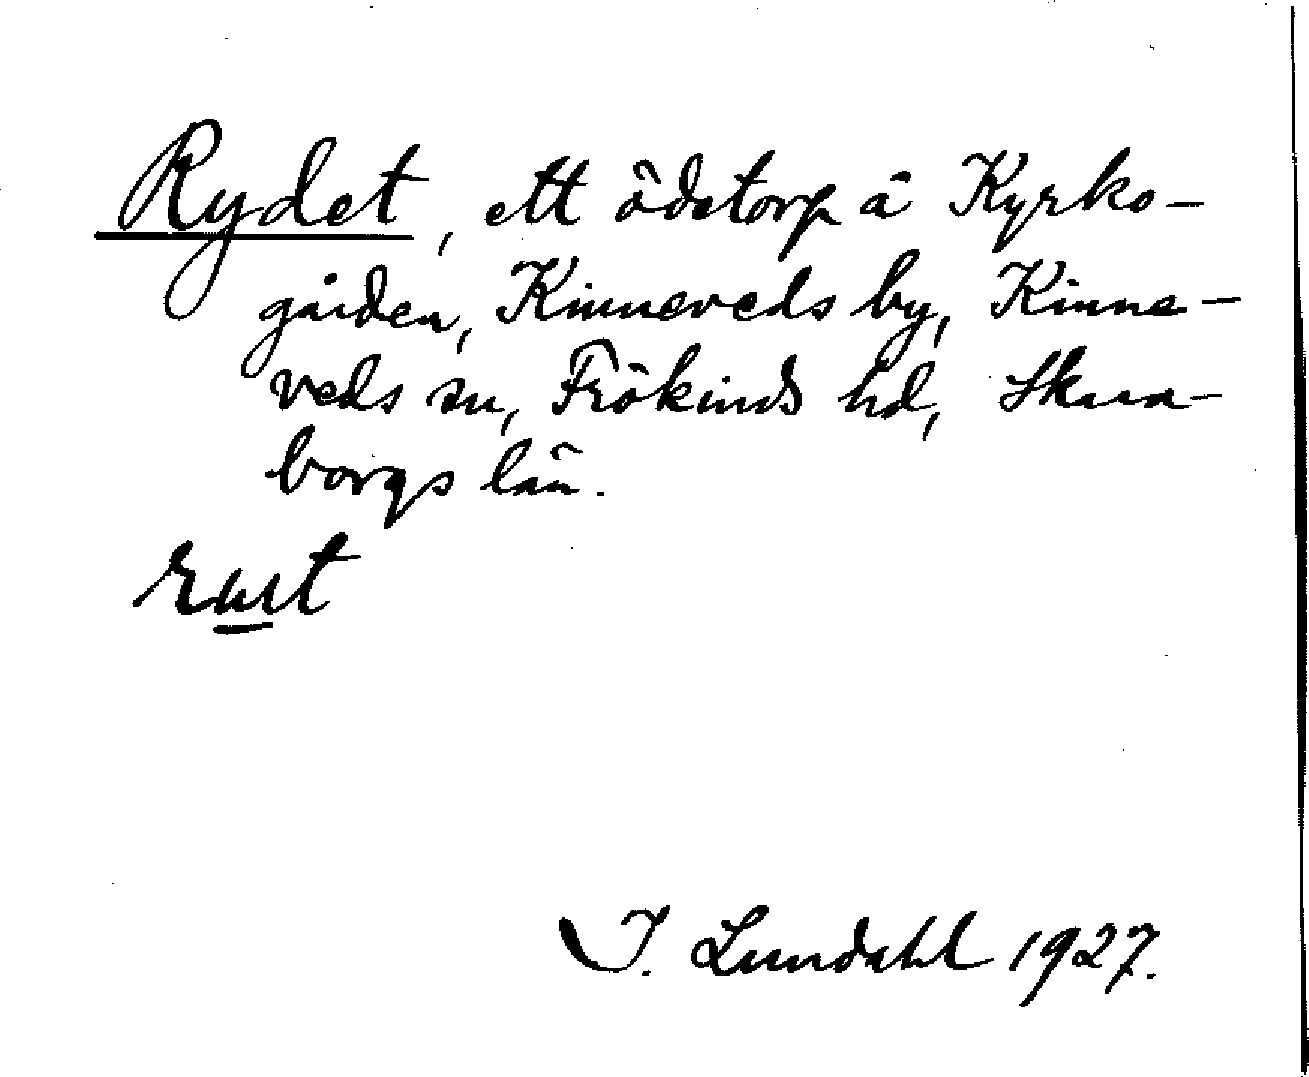 Rydet, ett ödetorp å Kyrko-
gården, Kinneveds by, Kinne-
veds sn, Frökinds hd, Skara-
borgs län.
J. Lundahl 1927.